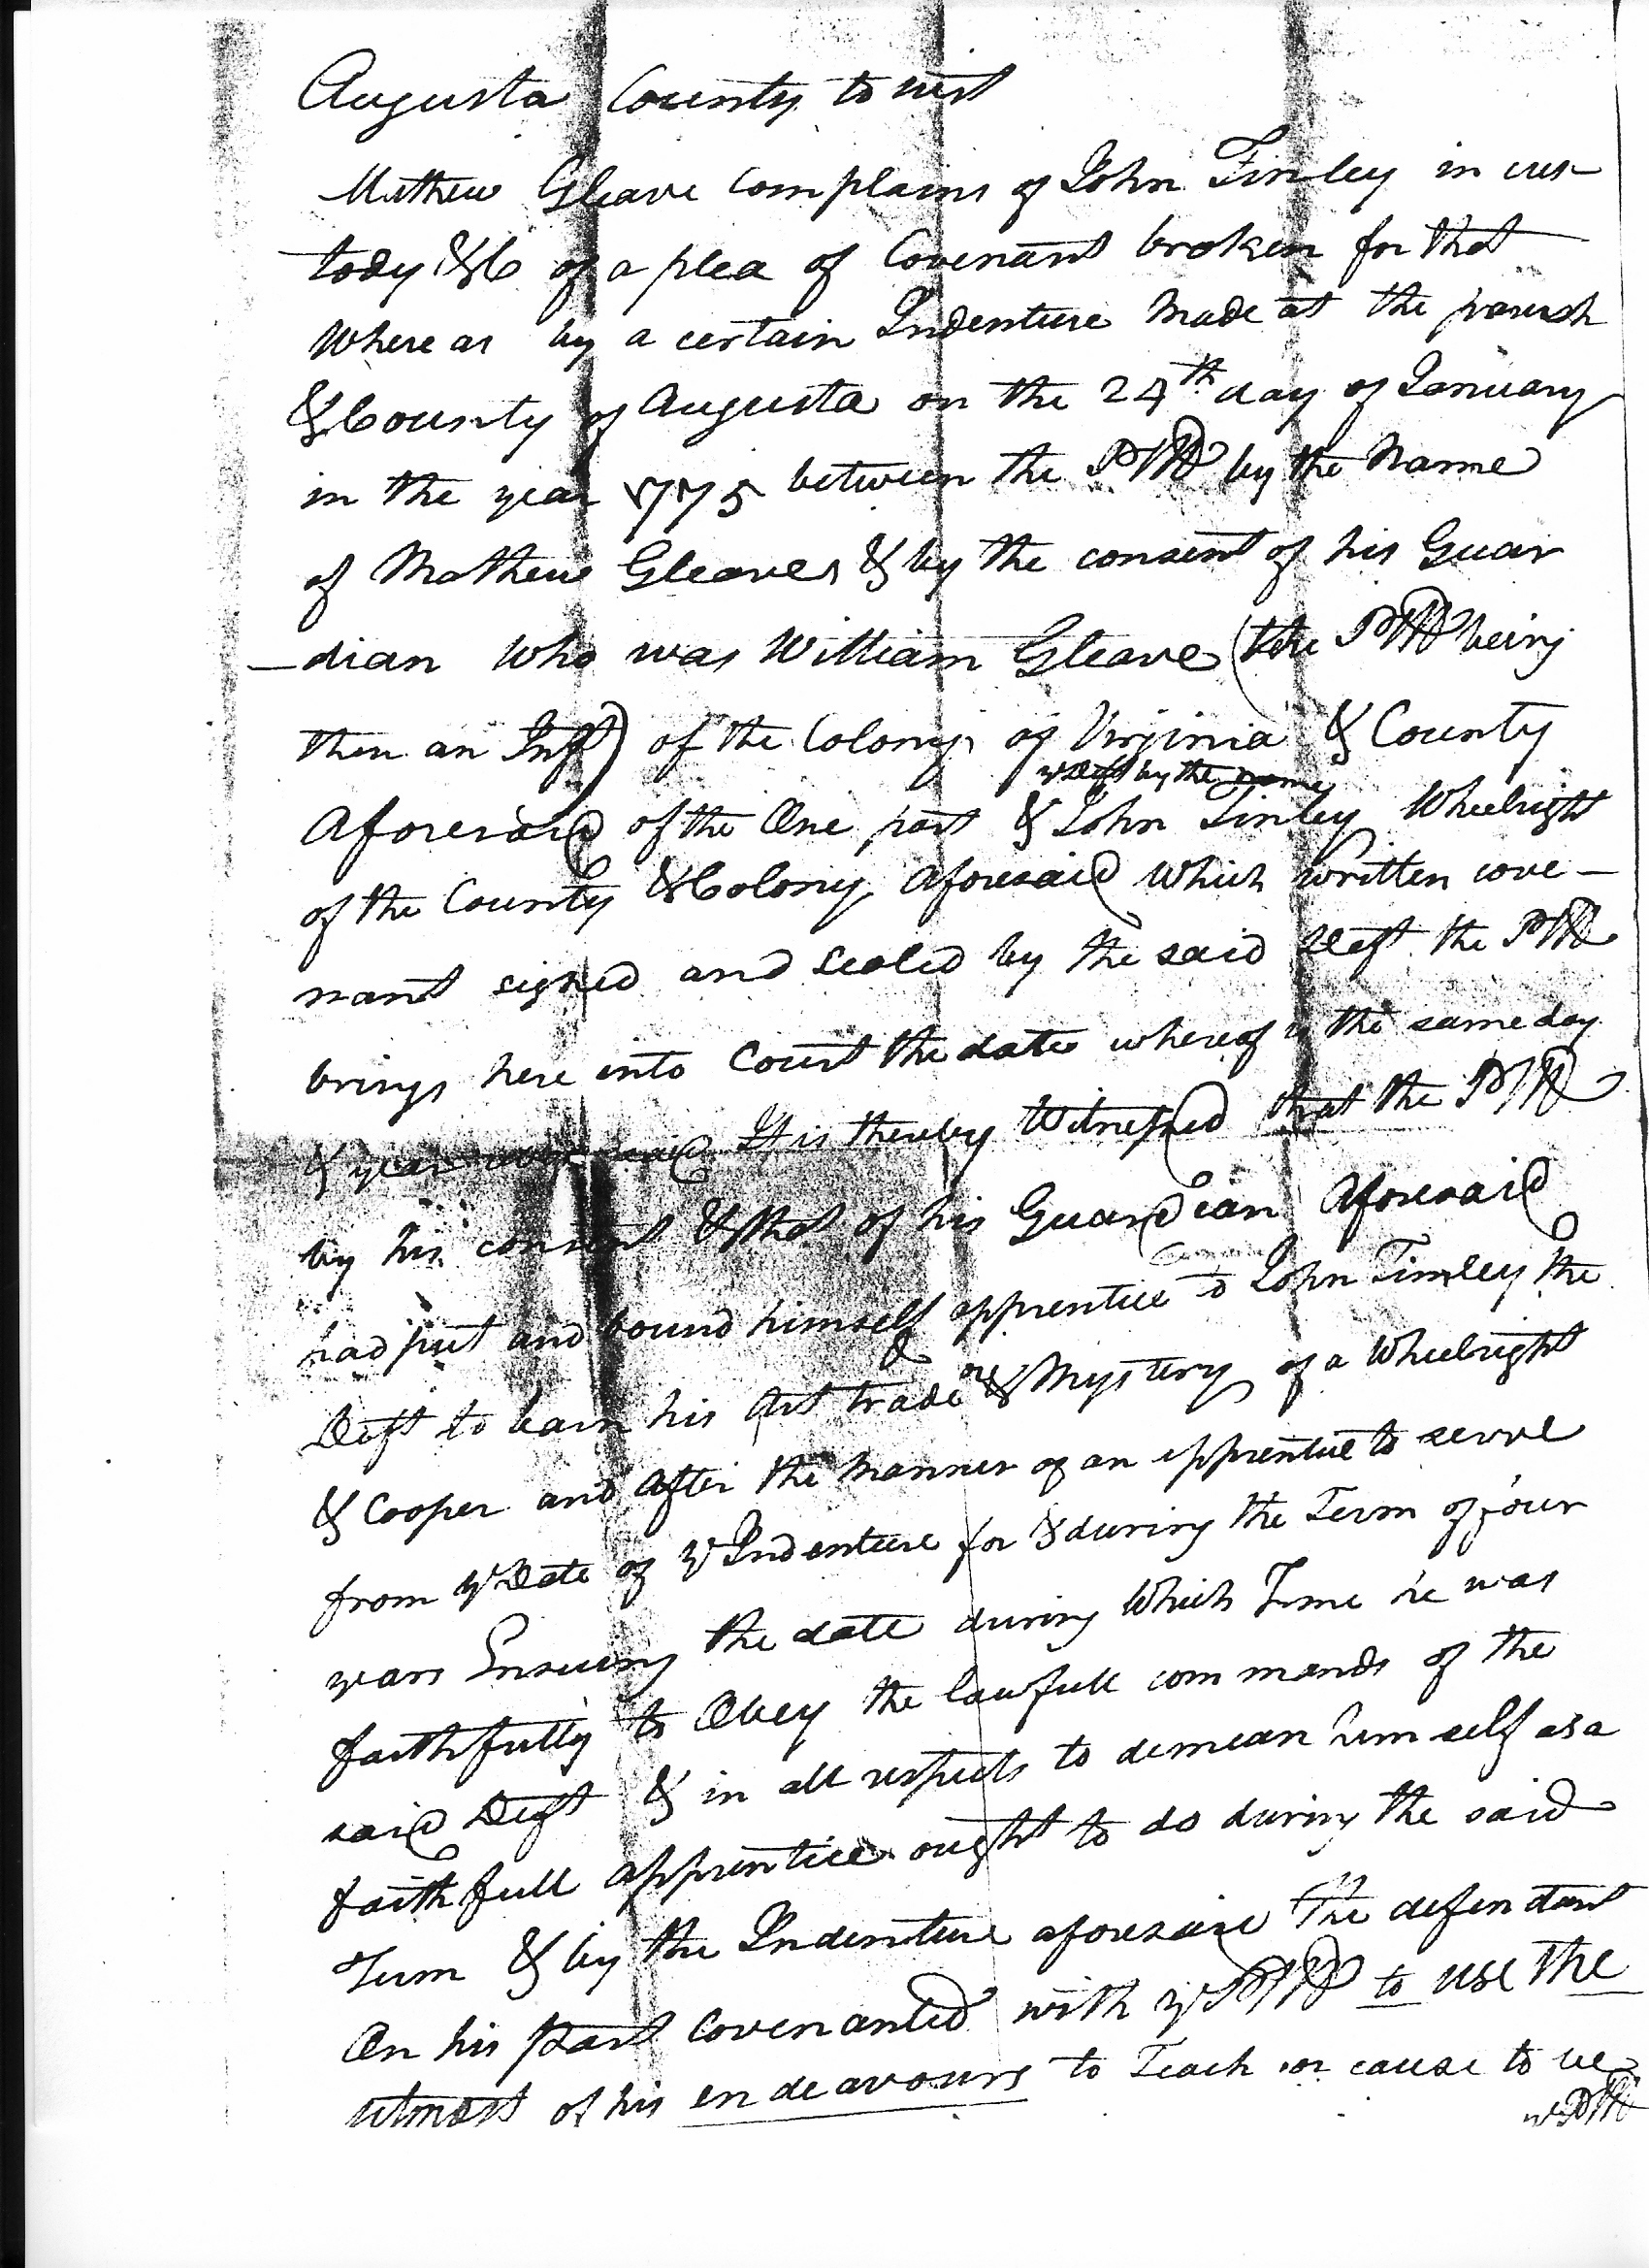 Augusta County to wit
Mathew Gleave complains of John Finley in cus-
tody &c of a plea of Covenant broken for that
Where as by a certain Indenture Made at the parish
& County of Augusta on the 24th day of January
in the year 1775 between the Pltf by the Name
of Mathew Gleaves & by the consent of his Guar
-dian Who was William Gleave (the Pltf being
then an Inft) of the Colony of Virginia & County
ye Deft by the name
Aforesaid of the One part & John Finley Wheelright
of the County & Colony Aforesaid Which written cove-
nant signed and sealed by the said Deft the Pltf
brings here into Court the date whereof is the same day
& year It is thereby Witnessed that the Pltf
by his consent & that of his Guardian Aforesaid
had put and bound himself apprentice to John Finley the
Deft to learn his Art trade or & Mystery of a Wheelright
& Cooper and After the Manner of an apprentice to serve
from ye Date of ye Indenture for & during the Term of four
years Ensuing the date during Which Time he was
faithfully to Obey the lawfull commands of the
said Deft & in all respects to demean himself as a
faithfull apprentice ought to do during the said
Term & by the Indenture aforesaid The defendant
On his part Covenanted with ye Pltf to use the
utmost of his endeavours to Teach or cause to be
ye Pltf